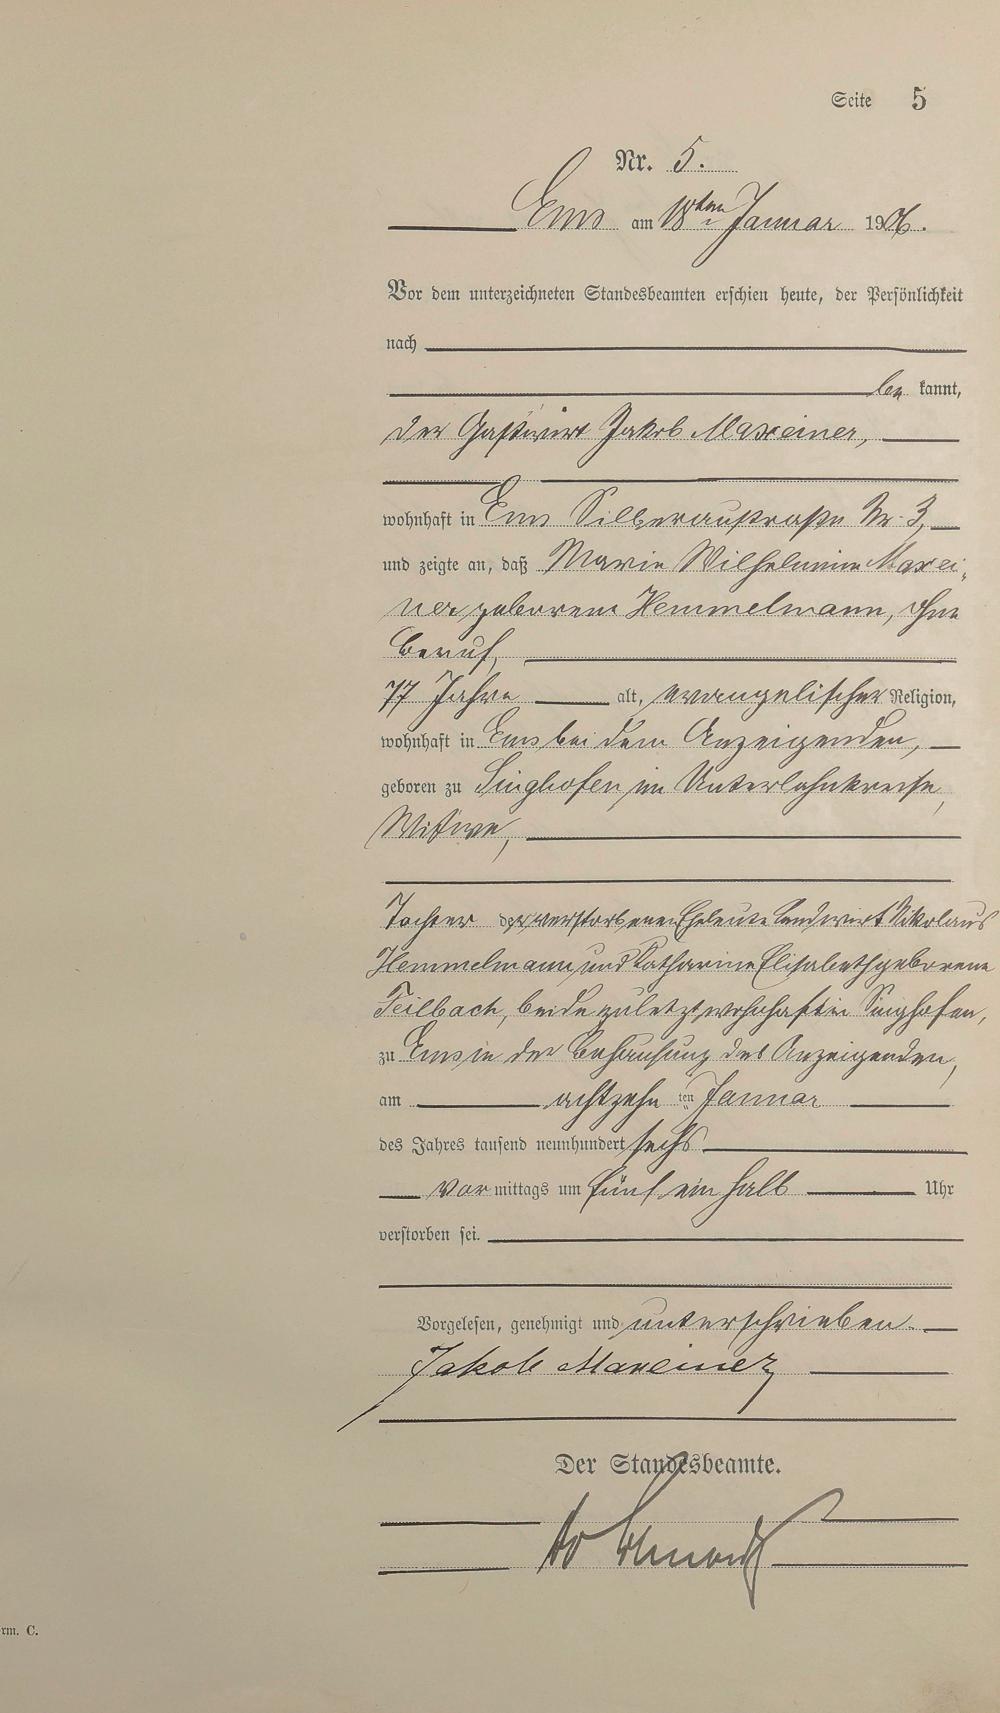 Seite 5
Nr. 5.
Ems am 18ten Januar 1906.
Vor dem unterzeichneten Standesbeamten erschien heute, der Persönlichkeit
nach
be kannt,
der Gastwirt Jakob Maxeiner,
wohnhaft in Ems Silberaustraße Nr. 3,
und zeigte an, daß Marie Wilhelmine Maxei-
ner geborene Hemmelmann, ohne
Beruf,
77 Jahre alt, evangelischer Religion,
wohnhaft in Ems bei dem Anzeigenden,
geboren zu Singhofen im Unterlahnkreise,
Witwe,
Tochter der verstorbenen Eheleute Landwirt Nikolaus
Hemmelmann und Katharine Elisabeth geborene
Teilbach, beide zuletzt wohnhaft in Singhofen,
zu Ems in der Behausung des Anzeigenden,
am achtzehn ten Januar
des Jahres tausend neunhundert sechs
vor mittags um fünf ein halb Uhr
verstorben sei.
Vorgelesen, genehmigt und unterschrieben.
Jakob Maxeiner
Der Standesbeamte.
rm. C.